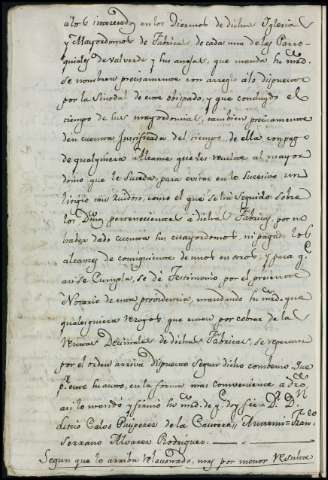 á los interesados en los Diezmos de dichas Iglesias
y Mayordomos de Fabrica de cada una de las Parro-
quiales de Valverde y sus anejas, que manda su md.
se nombren precisamente con arreglo á lo dispuesto
por la Sinodal de este obispado, y que concluydo el
tiempo de sus mayordomias, tambien precisamente
den cuenta justificada del tiempo de ella con pago
de qualquiera alcance, que les resulte al mayor
domo que le suceda, para evitar en lo sucesivo con
litigio tan ruidoso, como el que se ha seguido sobre
los pertenecientes a dichas Fabricas, por no
haber dado cuentas sus mayordomos ni pagado los
alcances de consiguiente de unos en otros, y para q.
asi se cumpla, se dé Testimonio por el presente
Notario de esta providencia, mandando su md. que
qualesquiera que esten por cobrar de las
Rentas Decimales de dichas Fabricas, se execute
por el orden arriva dispuesto segun dicho convenio. Que
p. este su auto, en la forma mas conveniente a dro
asi lo mandó y firmó su md. de q. doy fee = D.
=
Serrano Alvarez Rodriguez.
Segun que lo arriba relacionado, mas por menor resulta